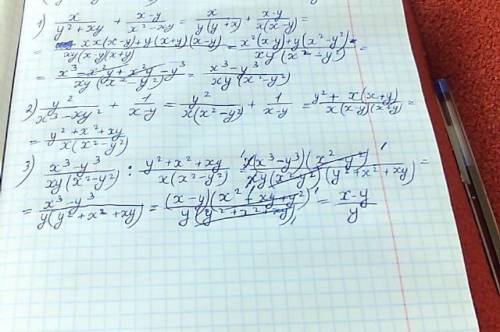 1) x/(y²+xy) + (x-y)/(x²-xy) = x/(y(y+x)) + (x-y)/(x(x-y)) =
= (x·x(x-y)+y(x+y)(x-y))/(xy(x-y)(x+y)) = (x²(x-y)+y(x²-y²))/(xy(x²-y²)) =
= (x³-x²y+x²y-y³)/(xy(x²-y²)) = (x³-y³)/(xy(x²-y²))
2) y²/(x³-xy²) + 1/(x-y) = y²/(x(x²-y²)) + 1/(x-y) = (y²+x(x+y))/(x(x-y)(x+y)) =
= (y²+x²+xy)/(x(x²-y²))
3) (x³-y³)/(xy(x²-y²)) : (y²+x²+xy)/(x(x²-y²)) = (x(x³-y³)(x²-y²))/(xy(x²-y²)(y²+x²+xy)) =
= (x³-y³)/(y(y²+x²+xy)) = ((x-y)(x²+xy+y²))/(y(y²+x²+xy)) = (x-y)/y